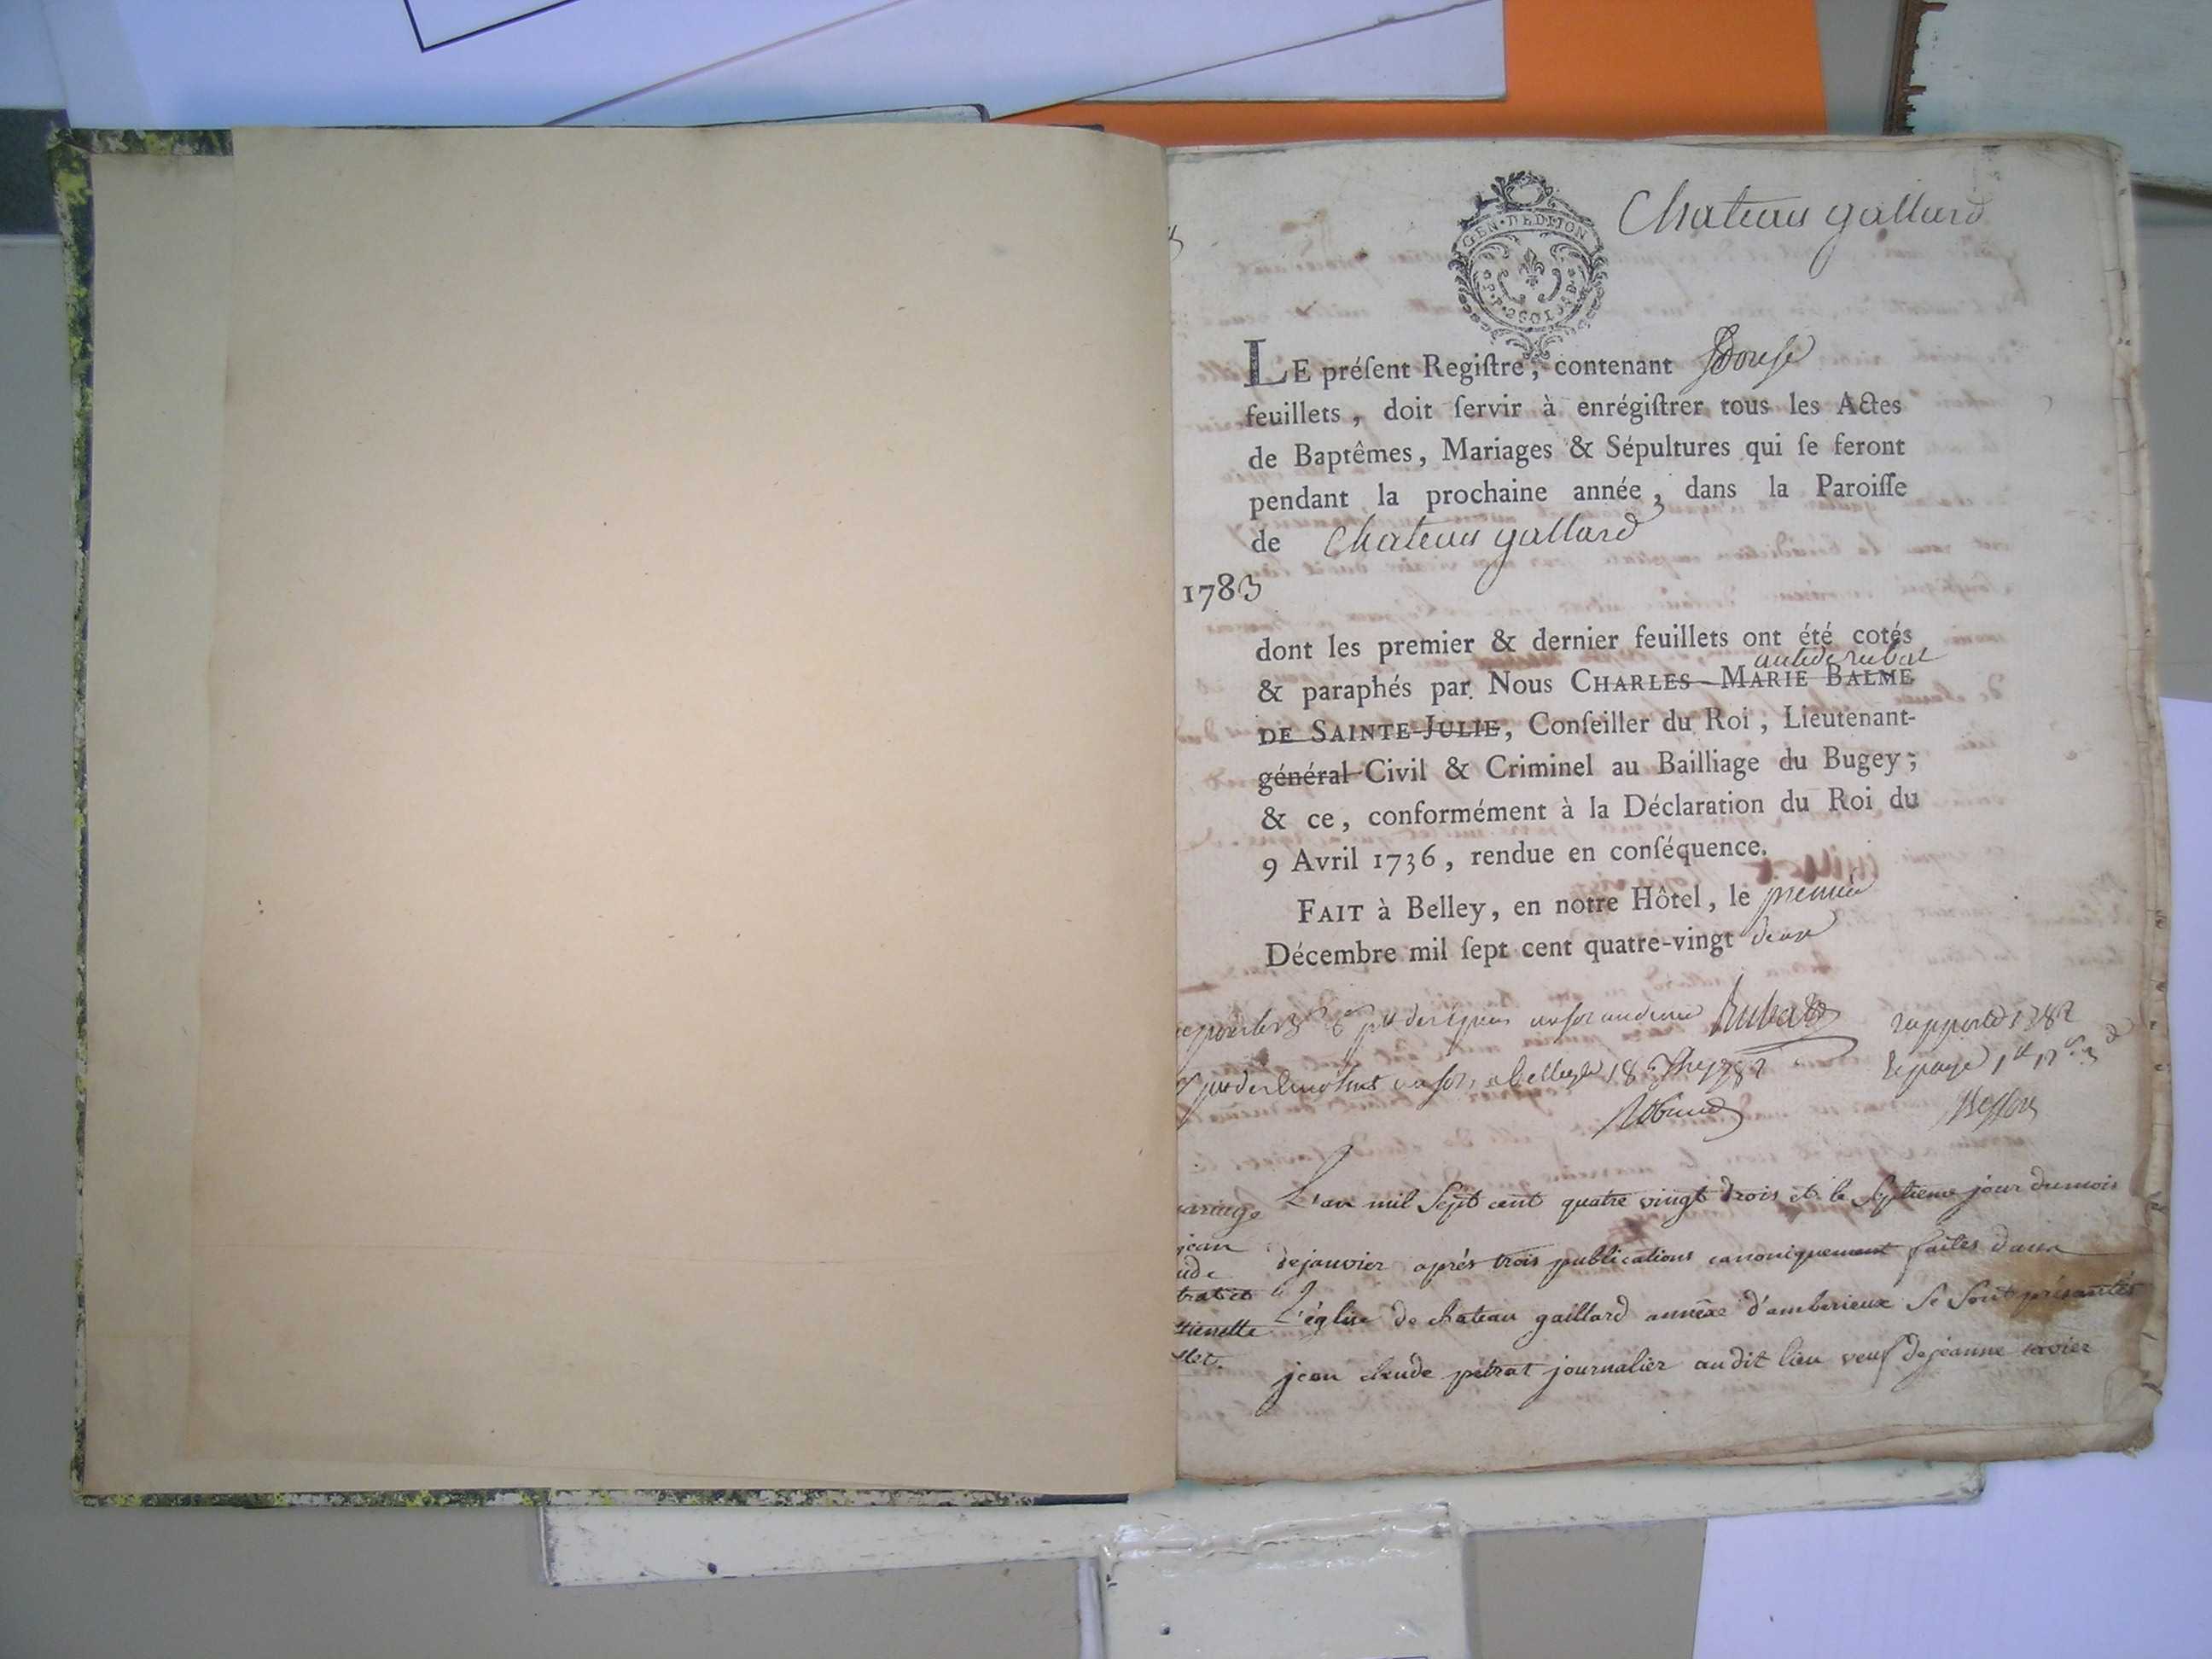 Chateau gallard
GEN · DE DIJON
LE préſent Regiſtre, contenant Douſe
feuillets, doit ſervir à enrégiſtrer tous les Actes
de Baptêmes, Mariages & Sépultures qui ſe feront
pendant la prochaine année, dans la Paroiſſe
de Chateau gallard
1783
dont les premier & dernier feuillets ont été cotés
& paraphés par Nous CHARLES-MARIE BALME
DE SAINTE-JULIE, Conſeiller du Roi, Lieutenant-
général Civil & Criminel au Bailliage du Bugey;
& ce, conformément à la Déclaration du Roi du
9 Avril 1736, rendue en conſéquence.
FAIT à Belley, en notre Hôtel, le premier
Décembre mil ſept cent quatre-vingt deux
Rubat
rapporté 1782
mariage L'an mil Sept cent quatre vingt trois et le Septieme jour du mois
jean
de janvier aprés trois publications canoniquement faites dans
L'église de chateau gaillard annéxe d'amberieux se sont présentés
jean claude pitrat journalier audit lieu veuf de jeanne